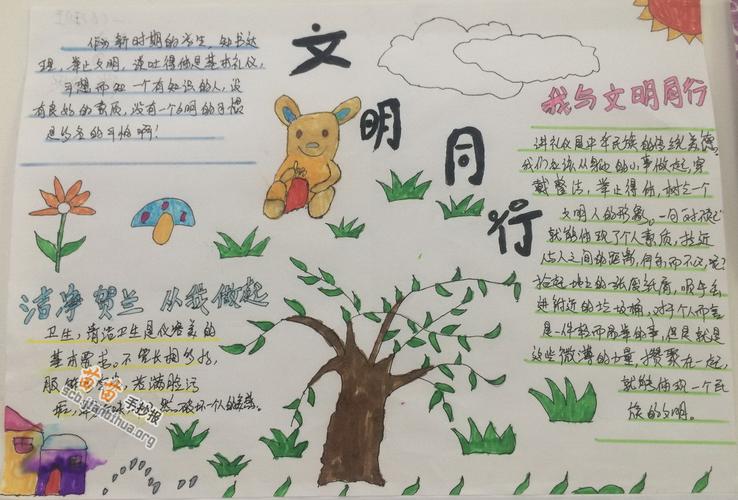 作为新时期的学生，知书达
理，举止文明，谈吐得体是基本礼仪，
可想而知一个有知识的人，没
有良好的素质，没有一个文明的习惯
是多么的可怕啊！
文明同行
我与文明同行
讲礼仪是中华民族的传统美德。
我们应该从身边的小事做起，穿
戴整洁，举止得体，树立一个
文明人的形象。一句对不起
就能体现了个人素质，拉近
人与人之间的距离，何乐而不为呢？
捡起地上的张废纸屑，顺手丢
进附近的垃圾桶，对于个人而言
是一件轻而易举的事，但是就是
这些微薄的力量，攒聚在一起，
就能体现一个民
族的文明。
洁净贺兰 从我做起
卫生，清洁卫生是仪容美的
基本要求。不管长相多好，
服
若满脸污
破坏一个人的美感。
苗苗手抄报
scb.jianbihua.org